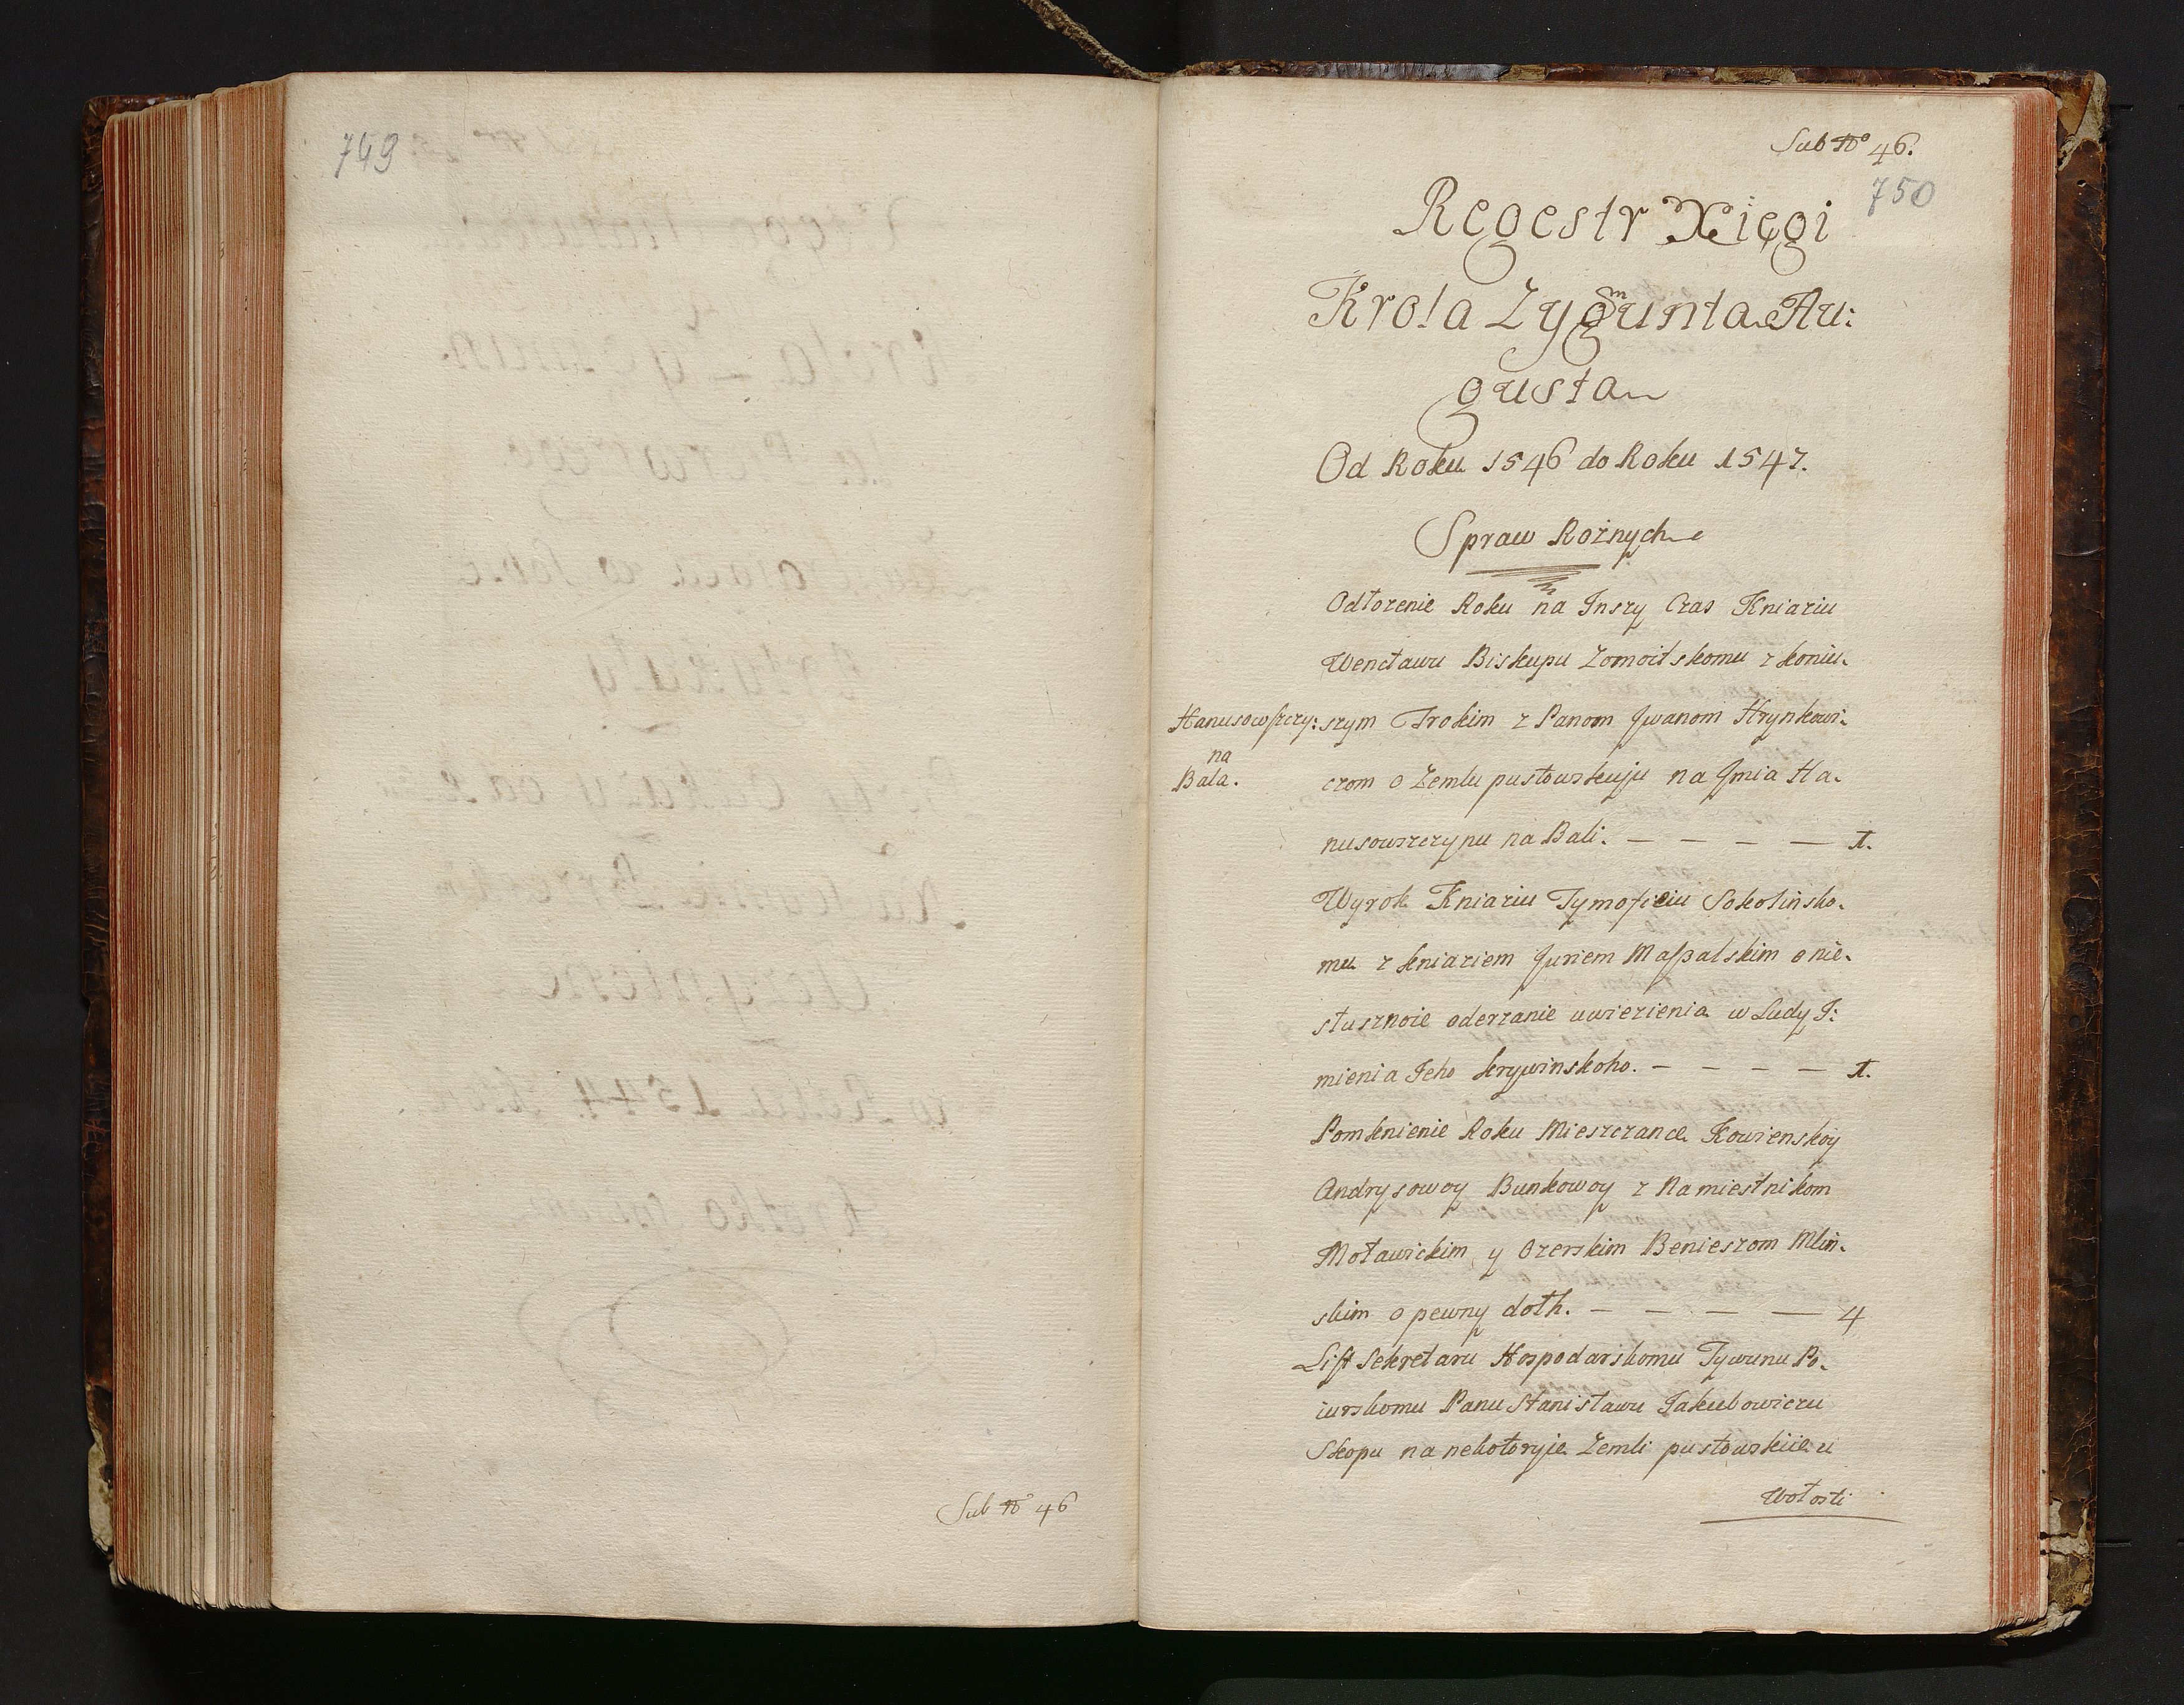 749
Sub No 46
Sub No 46.
750
Regestr Xięgi
Krola Zygmunta Au:
gusta
Od Roku 1546 do Roku 1547.
Spraw Rożnych
Odłożenie Roku na Inszy Czas Kniaziu
Wencławu Biskupu Żomoitskomu z koniu-
szym Trokim z Panom Iwanom Hrynkowi-
Hanusowszczy:
na
Bala.
czom o Zemlu pustowskuju na Imia Ha-
nusowszczynu na Bali. — — — — 1.
Wyrok Kniaziu Tymofieiu Sokolińsko-
mu z kniaziem Juriem Massalskim o nie-
słusznoie oderżanie uwiezienia w Ludy I:
mienia Jeho krywinskoho. — — — — 1.
Pomknienie Roku Mieszczance Kowienskoy
Andrysowoy Bunkowoy z Namiestnikom
Moławickim y Ozerskim Benieszom Mlin-
skim o pewny dolh. — — — — 4
List Sekretaru Hospodarskomu Tywunu Po-
iurskomu Panu Stanisławu Jakubowiczu
Skopu na nekotoryie Zemli pustowskiie u
Wołosti